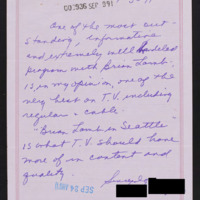 00,936 SEP 99?
One of the most out-
standing, informative
and extremely well handled
program with Brian Lamb
is, in my opinion, one of the
very best on T.V. including
regular & cable.
"Brian Lamb in Seattle"
is what T.V. should have
more of in content and
quality.
SEP 24
Sincerely